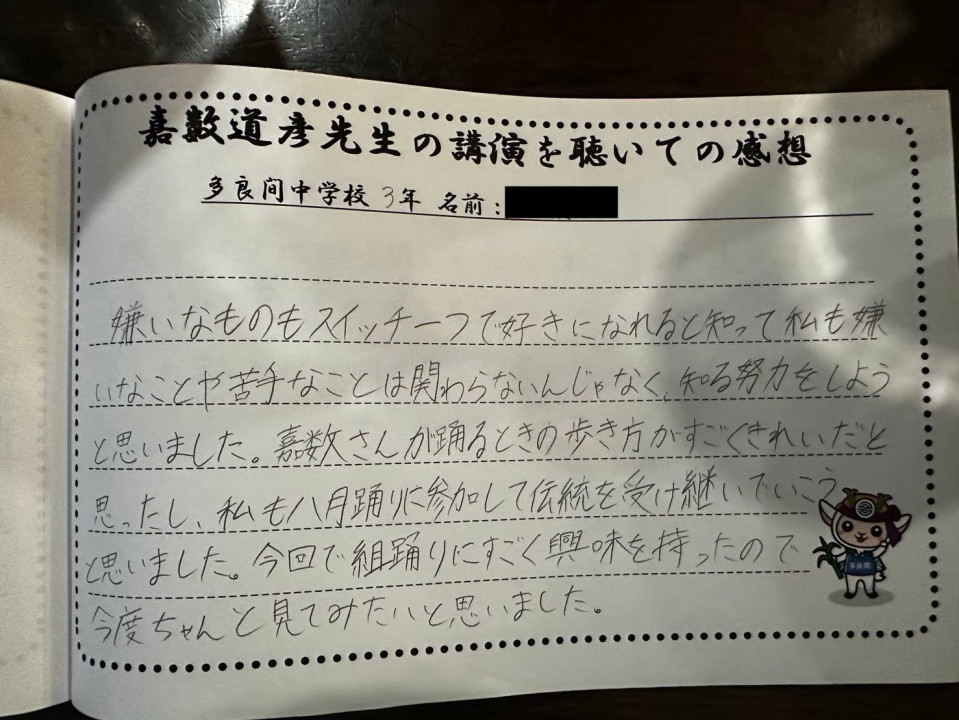 嘉数道彦先生の講演を聴いての感想
多良間中学校 3年 名前:
嫌いなものもスイッチ一つで好きになれると知って私も嫌
いなことや苦手なことは関わらないんじゃなく、知る努力をしよう
と思いました。嘉数さんが踊るときの歩き方がすごくきれいだと
思ったし、私も八月踊りに参加して伝統を受け継いでいこう
と思いました。今回で組踊りにすごく興味を持ったので
今度ちゃんと見てみたいと思いました。
多良間